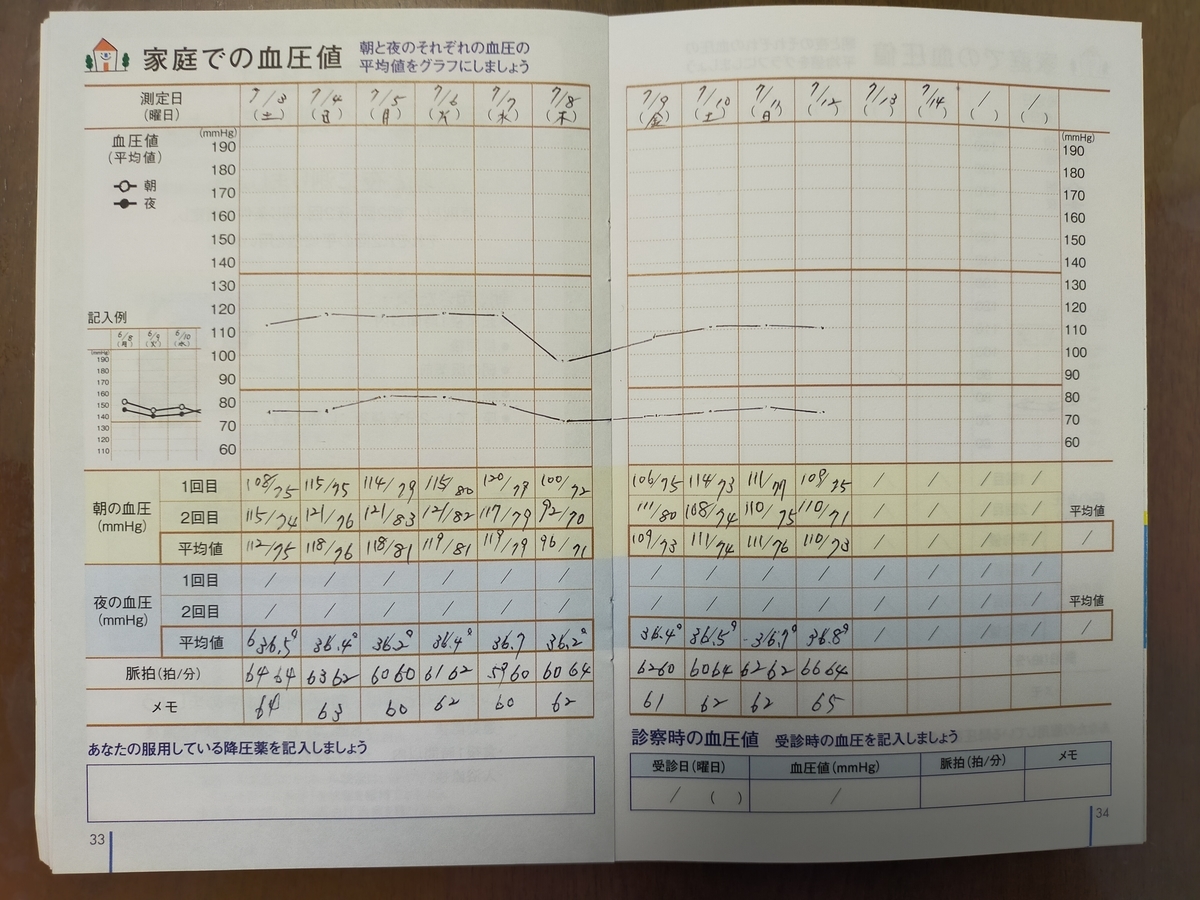 家庭での血圧値
朝と夜のそれぞれの血圧の
平均値をグラフにしましょう
測定日 7/3 7/4 7/5 7/6 7/7 7/8 7/9 7/10 7/11 7/12 7/13 7/14 / /
(曜日) (土) (日) (月) (火) (水) (木) (金) (土) (日) ( ) ( ) ( ) ( ) ( )
血圧値
(平均値)
朝
夜
(mmHg)
190
180
170
160
150
140
130
120
110
100
90
80
70
60
(mmHg)
190
180
170
160
150
140
130
120
110
100
90
80
70
60
記入例
6/8 6/9 6/10
(月) (火) (水)
(mmHg)
190
180
170
160
150
140
130
120
110
朝の血圧
(mmHg)
1回目 108/75 115/75 114/79 115/80 120/79 100/72 106/75 114/73 111/77 109/75 / / / /
2回目 115/74 121/76 121/83 121/82 117/79 92/70 111/80 108/74 110/75 110/71 / / / / 平均値
平均値 112/75 118/76 118/81 119/81 119/79 96/71 109/73 111/74 111/76 110/73 / / / / /
夜の血圧
(mmHg)
1回目 / / / / / / / / / / / / / /
2回目 / / / / / / / / / / / / / / 平均値
平均値 36.5° 36.4° 36.2° 36.4° 36.7 36.2° 36.4° 36.5° 36.7° 36.8° / / / / /
脈拍(拍/分) 64 64 63 62 60 60 61 62 59 60 60 64 62 60 60 64 62 62 66 64
メモ 64 63 60 62 60 62 61 62 62 65
あなたの服用している降圧薬を記入しましょう
33
診察時の血圧値 受診時の血圧を記入しましょう
受診日(曜日) 血圧値(mmHg) 脈拍(拍/分) メモ
/ ( ) /
34